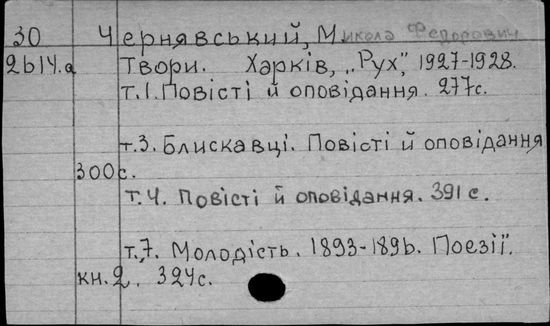 30 Чернявський, Микола Федорович
2614.а Твори. Харків, „Рух", 1927-1928.
т.1. Повісті й оповідання. 277с.
т.3. Блискавці. Повісті й оповідання
300с.
т.4. Повісті й оповідання. 391 с.
т.7. Молодість. 1893-1896. Поезії.
кн. 2. 324с.